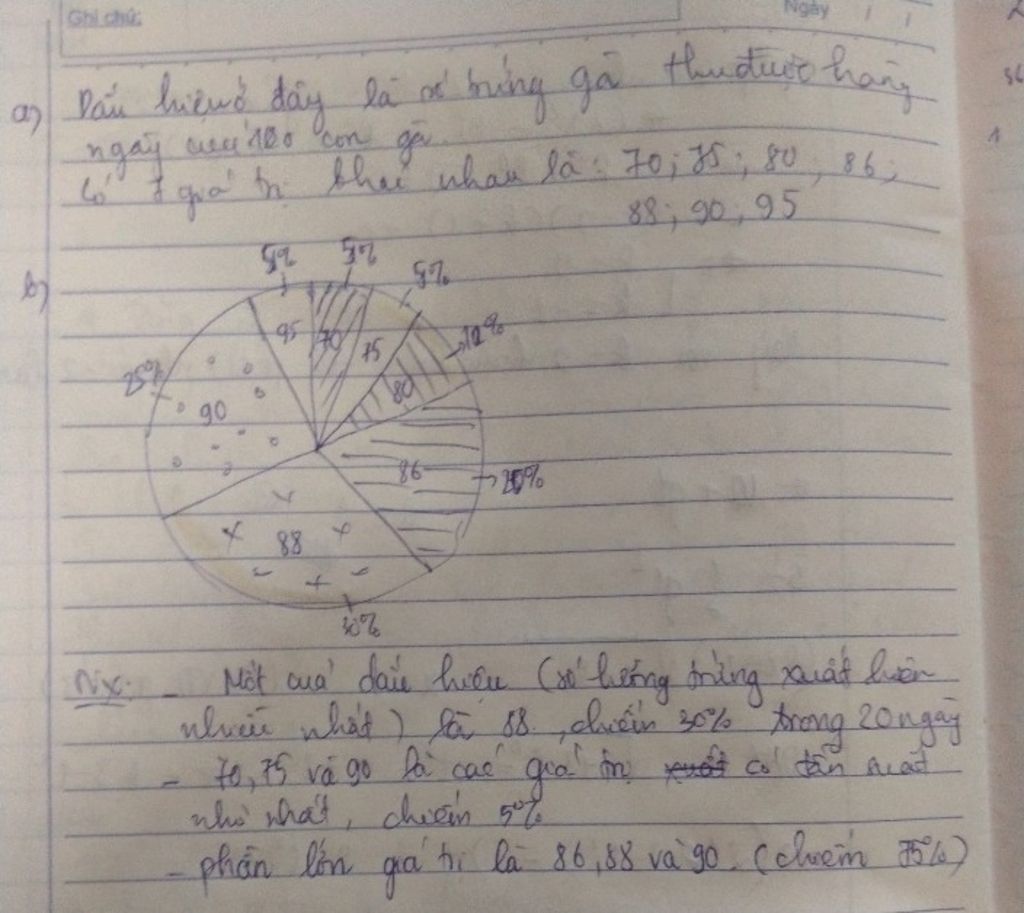 Ghi chú:
Ngày / /
a) Dấu hiệu ở đây là số trứng gà thu được hàng
ngày của 100 con gà.
Có 7 giá trị khác nhau là: 70; 75; 80, 86;
88; 90, 95
b)
5% 5% 5%
10%
25%
95 70 75
80
90
86 20%
88
30%
Nx: - Mốt của dấu hiệu (số lượng trứng xuất hiện
nhiều nhất) là 88, chiếm 30% trong 20 ngày
- 70, 75 và 90 là các giá trị có tần suất
nhỏ nhất, chiếm 5%
- phần lớn giá trị là 86, 88 và 90. (chiếm 75%)